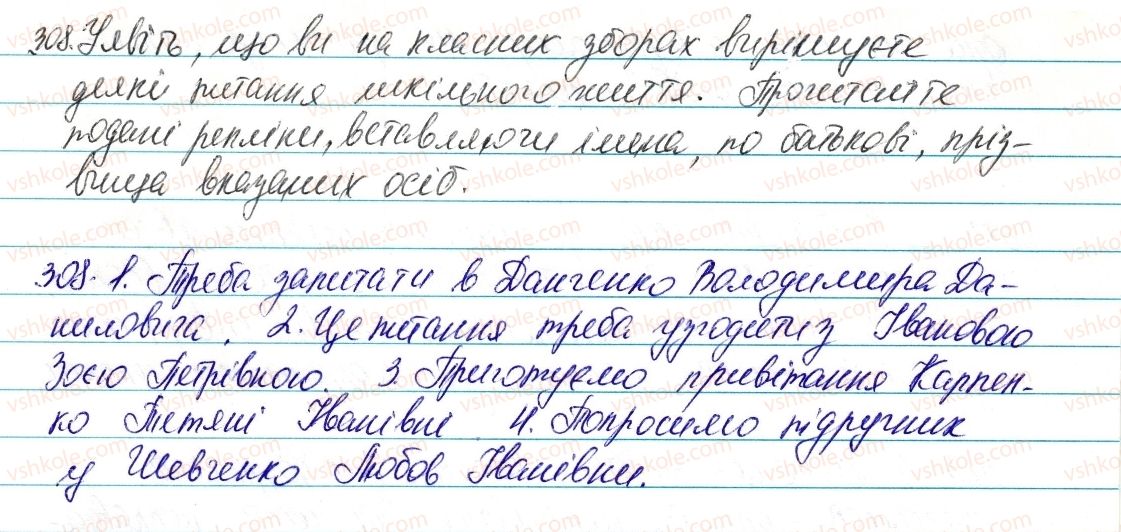 308. Уявіть, що ви на класних зборах вирішуєте
деякі питання шкільного життя. Прочитайте
подані репліки, вставляючи імена, по батькові, пріз-
вища вказаних осіб.
308. 1. Треба запитати в Данченко Володимира Да-
ниловича. 2. Це питання треба узгодити з Івановою
Зоєю Петрівною. 3. Приготуємо привітання Карпен-
ко Тетяні Іванівні 4. Попросимо підручник
у Шевченко Любов Іванівни.